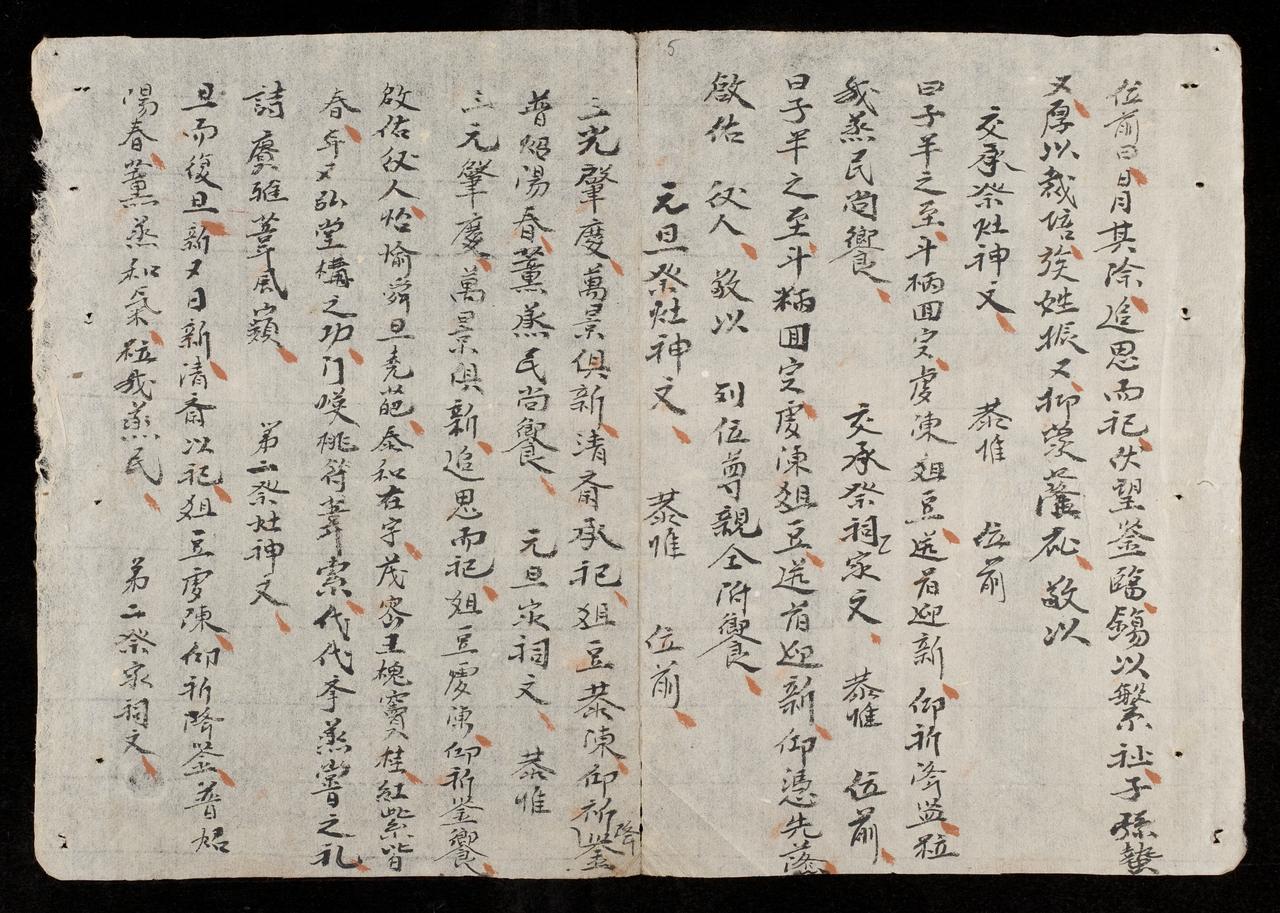 位前曰日月其除追思而祀伏望鉴臨錫以繁祉子孫蟄
又厚以栽培族姓振又仰蒙蔭庇敬以
交承祭灶神文 恭惟 位前
曰子半之至斗柄回寅虔陳俎豆送舊迎新仰祈降鉴粒
我蒸民尚饗 交承祭祠家文 恭惟 位前
曰子半之至斗柄回寅虔陳俎豆送旧迎新仰憑先蔭
啟佑 後人敬以 列位尊親仝附饗
元旦祭灶神文 恭惟 位前
三光肇慶萬景俱新清齋承祀俎豆恭陳仰祈降鉴
普炤陽春薰蒸民尚饗 元旦家祠文 恭惟
三元肇慶萬景俱新追思而祀俎豆虔陳仰祈鉴饗
啟佑後人怡愉舜旦堯葩泰和在宇茂密王槐竇桂紅紫皆
春年又弘堂構之功门嘆桃符葦索代代孝蒸嘗之礼
詩賡雅葦風 第二祭灶神文
旦而復旦新又日新清齋以祀俎豆虔陳仰祈降鉴普炤
陽春薰蒸和氣粒我蒸民 第二祭家祠文